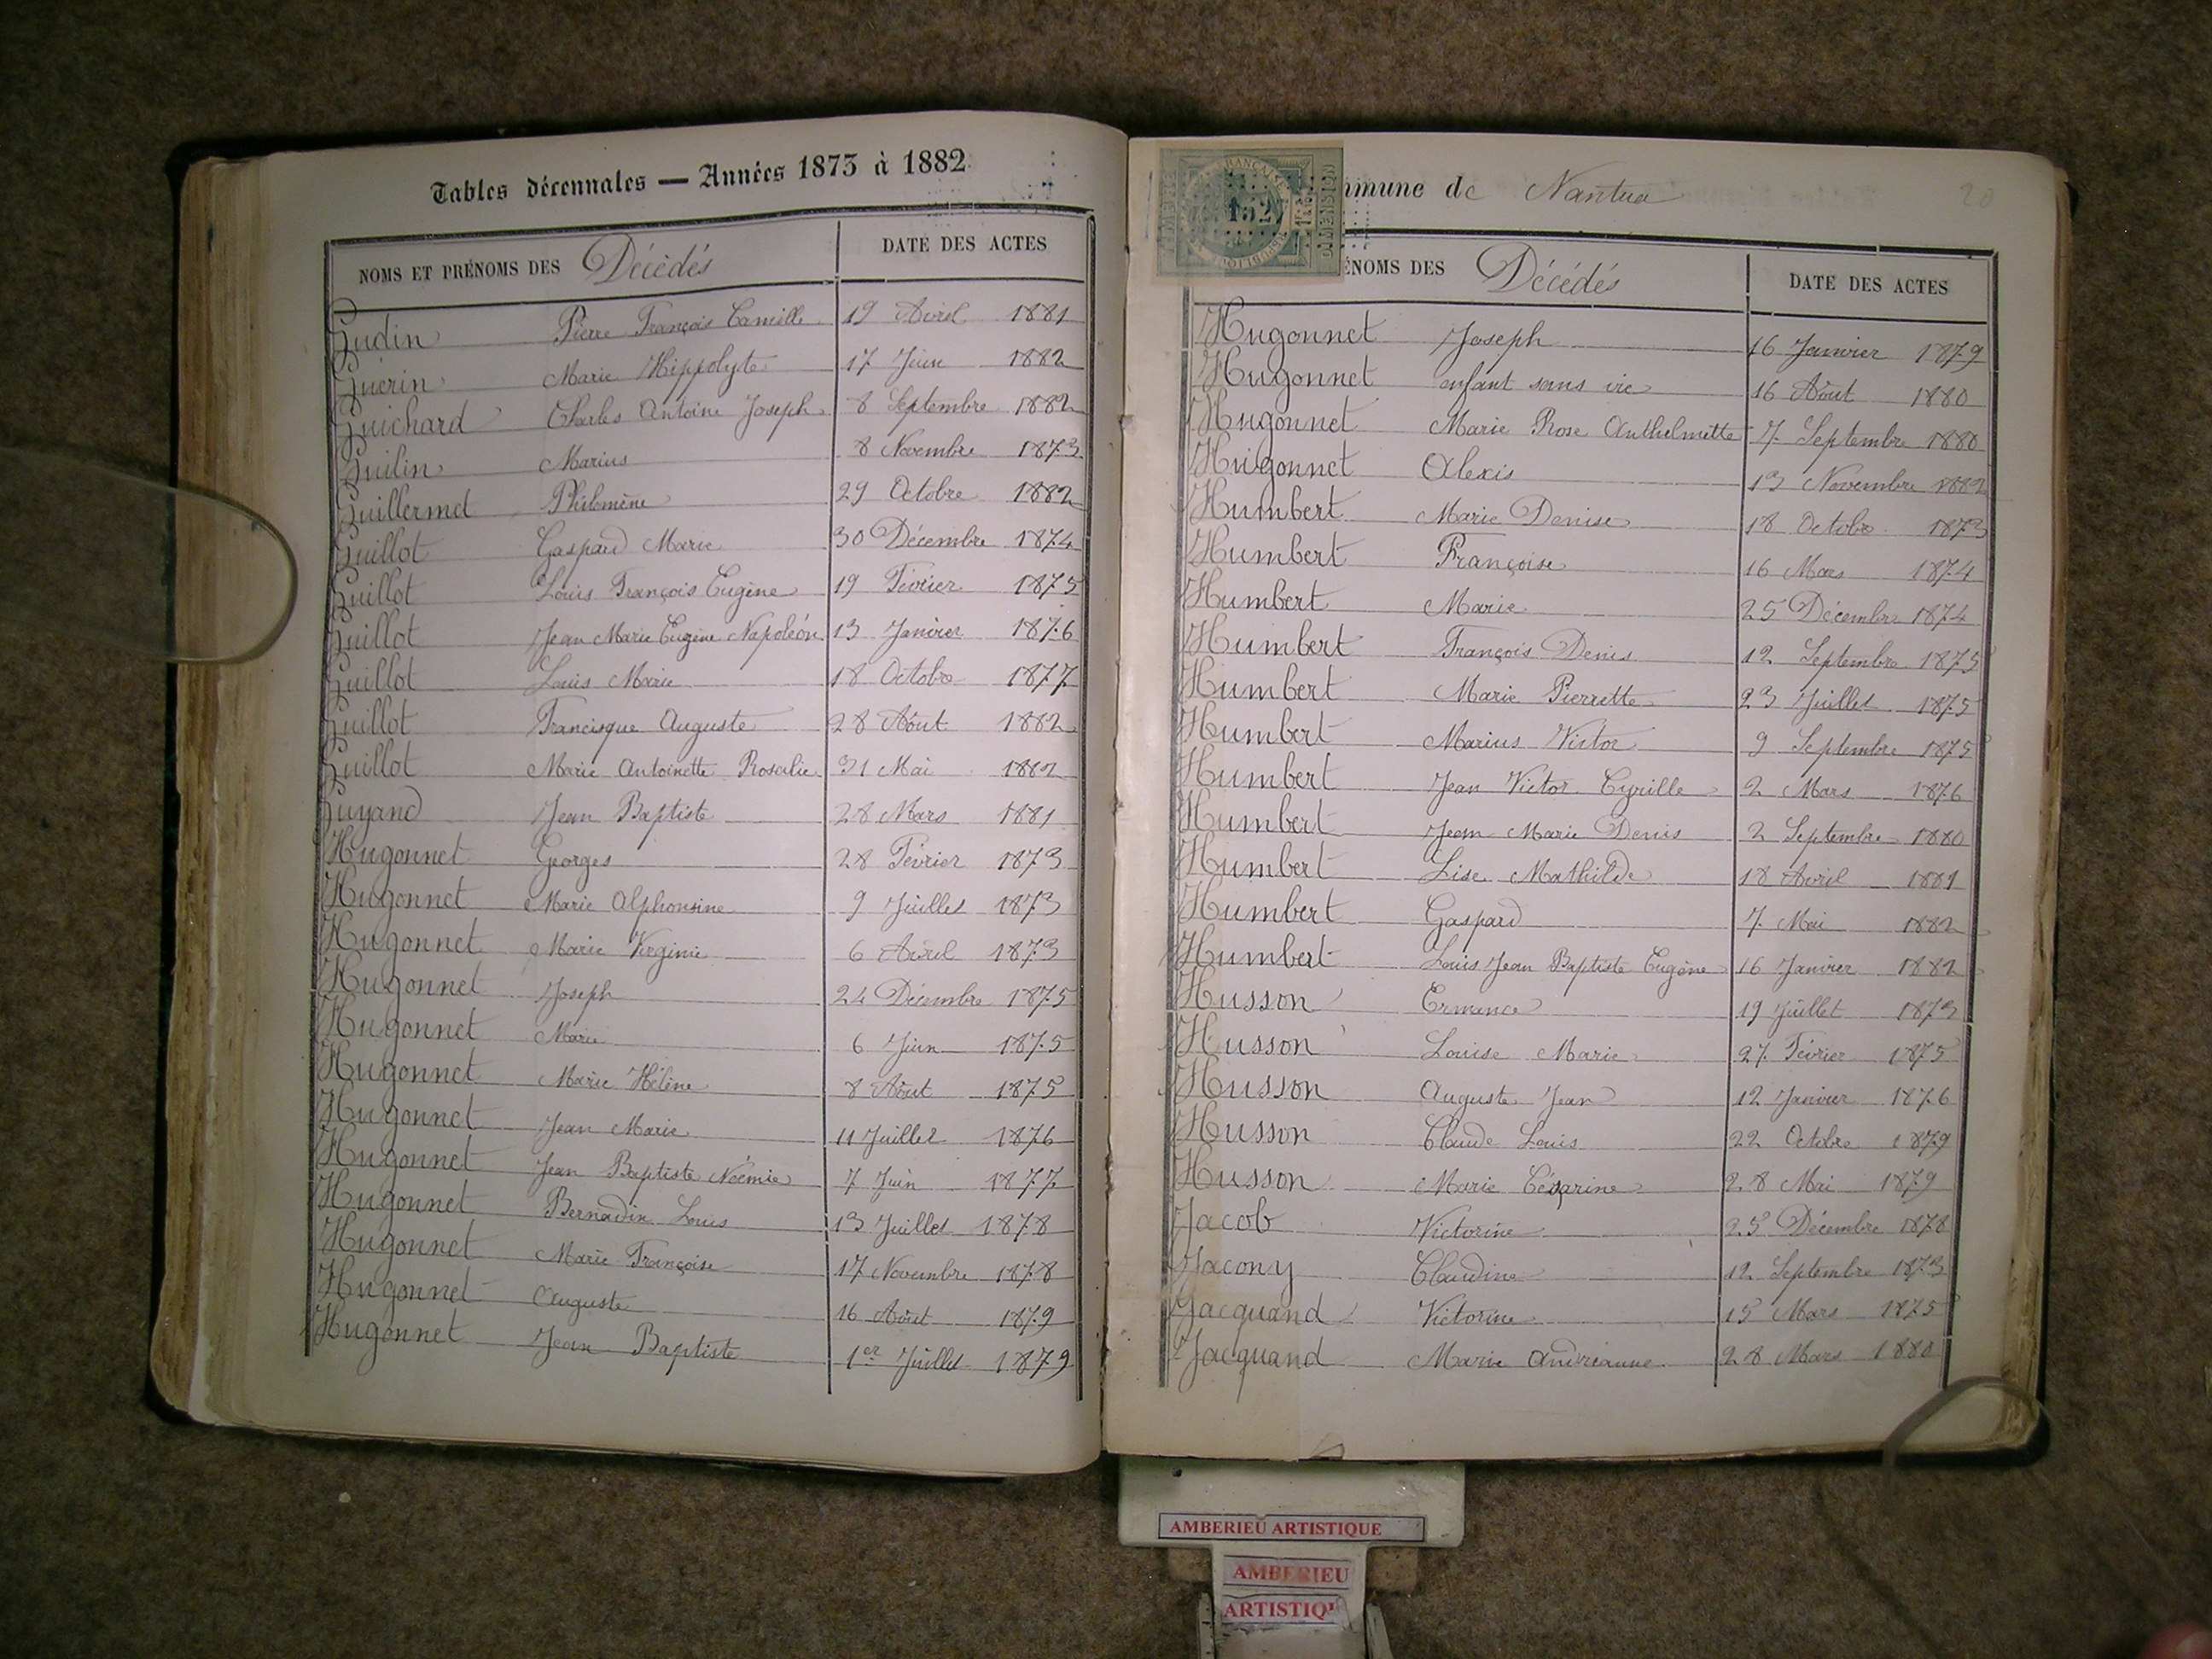 Tables décennales — Années 1873 à 1882
NOMS ET PRÉNOMS DES Décédés DATE DES ACTES
Gudin Pierre François Camille 19 Avril 1881
Guérin Marie Hippolyte 17 Juin 1882
Guichard Charles Antoine Joseph 8 Septembre 1882
Guilin Marius 8 Novembre 1873
Guillermet Philomène 29 Octobre 1882
Guillot Gaspard Marie 30 Décembre 1874
Guillot Louis François Eugène 19 Février 1875
Guillot Jean Marie Eugène Napoléon 13 Janvier 1876
Guillot Louis Marie 18 Octobre 1877
Guillot Francisque Auguste 28 Août 1882
Guillot Marie Antoinette Rosalie 31 Mai 1882
Guyand Jean Baptiste 28 Mars 1881
Hugonnet Georges 28 Février 1873
Hugonnet Marie Alphonsine 9 Juillet 1873
Hugonnet Marie Virginie 6 Avril 1873
Hugonnet Joseph 24 Décembre 1875
Hugonnet Marie 6 Juin 1875
Hugonnet Marie Hélène 8 Août 1875
Hugonnet Jean Marie 11 Juillet 1876
Hugonnet Jean Baptiste Noémie 7 Juin 1877
Hugonnet Bernadin Louis 13 Juillet 1878
Hugonnet Marie Françoise 17 Novembre 1878
Hugonnet Auguste 16 Août 1879
Hugonnet Jean Baptiste 1er Juillet 1879
mmune de Nantua 20
ÉNOMS DES Décédés DATE DES ACTES
Hugonnet Joseph 16 Janvier 1879
Hugonnet enfant sans vie 16 Août 1880
Hugonnet Marie Rose Anthelmette 7 Septembre 1880
Hugonnet Alexis 13 Novembre 1882
Humbert Marie Denise 18 Octobre 1873
Humbert Françoise 16 Mars 1874
Humbert Marie 25 Décembre 1874
Humbert François Denis 12 Septembre 1875
Humbert Marie Pierrette 23 Juillet 1875
Humbert Marius Victor 9 Septembre 1875
Humbert Jean Victor Cyrille 2 Mars 1876
Humbert Jean Marie Denis 2 Septembre 1880
Humbert Lise Mathilde 18 Avril 1881
Humbert Gaspard 7 Mai 1882
Humbert Louis Jean Baptiste Eugène 16 Janvier 1882
Husson Ermance 19 Juillet 1873
Husson Louise Marie 27 Février 1875
Husson Auguste Jean 12 Janvier 1876
Husson Claude Louis 22 Octobre 1879
Husson Marie Césarine 28 Mai 1879
Jacob Victorine 25 Décembre 1878
Jacony Claudine 12 Septembre 1873
Jacquand Victorine 15 Mars 1875
Jacquand Marie Andréanne 28 Mars 1880
AMBERIEU ARTISTIQUE
AMBERIEU
ARTISTIQU